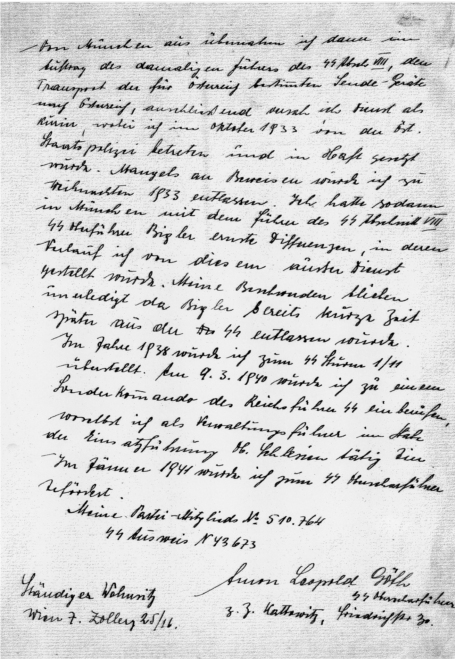 Von München aus übernahm ich dann im
Auftrag des damaligen Führers des SS Absch. VIII, den
Transport der für Österreich bestimmten Sende-Geräte
nach Österreich, anschließend versah ich Dienst als
Kurir, wobei ich im Oktober 1933 von der Öst.
Staatspolizei betreten und in Haft gesetzt
wurde. Mangels an Beweisen wurde ich zu
Weihnachten 1933 entlassen. Ich hatte sodann
in München mit dem Führer des SS Abschnitt VIII
SS Oberführer Bigler ernste Differenzen, in deren
Verlauf ich von diesem ausser Dienst
gestellt wurde. Meine Beschwerden blieben
unerledigt da Bigler bereits kurze Zeit
später aus der SS entlassen wurde.
Im Jahre 1938 wurde ich zum SS Sturm 1/11
überstellt. Am 9. 3. 1940 wurde ich zu einem
Sonderkommando des Reichsführer SS einberufen,
woselbst ich als Verwaltungsführer im Stabe
der Einsatzführung Ob. Schlesien tätig bin
Im Jänner 1941 wurde ich zum SS Oberscharführer
befördert.
Meine Partei-Mitglieds Nr. 510.764
SS Ausweis N 43673
Amon Leopold Göth
SS Oberscharführer
z. Z. Kattowitz, Friedrichstr. 30.
Ständiger Wohnsitz
Wien 7. Zollerg 25/16.